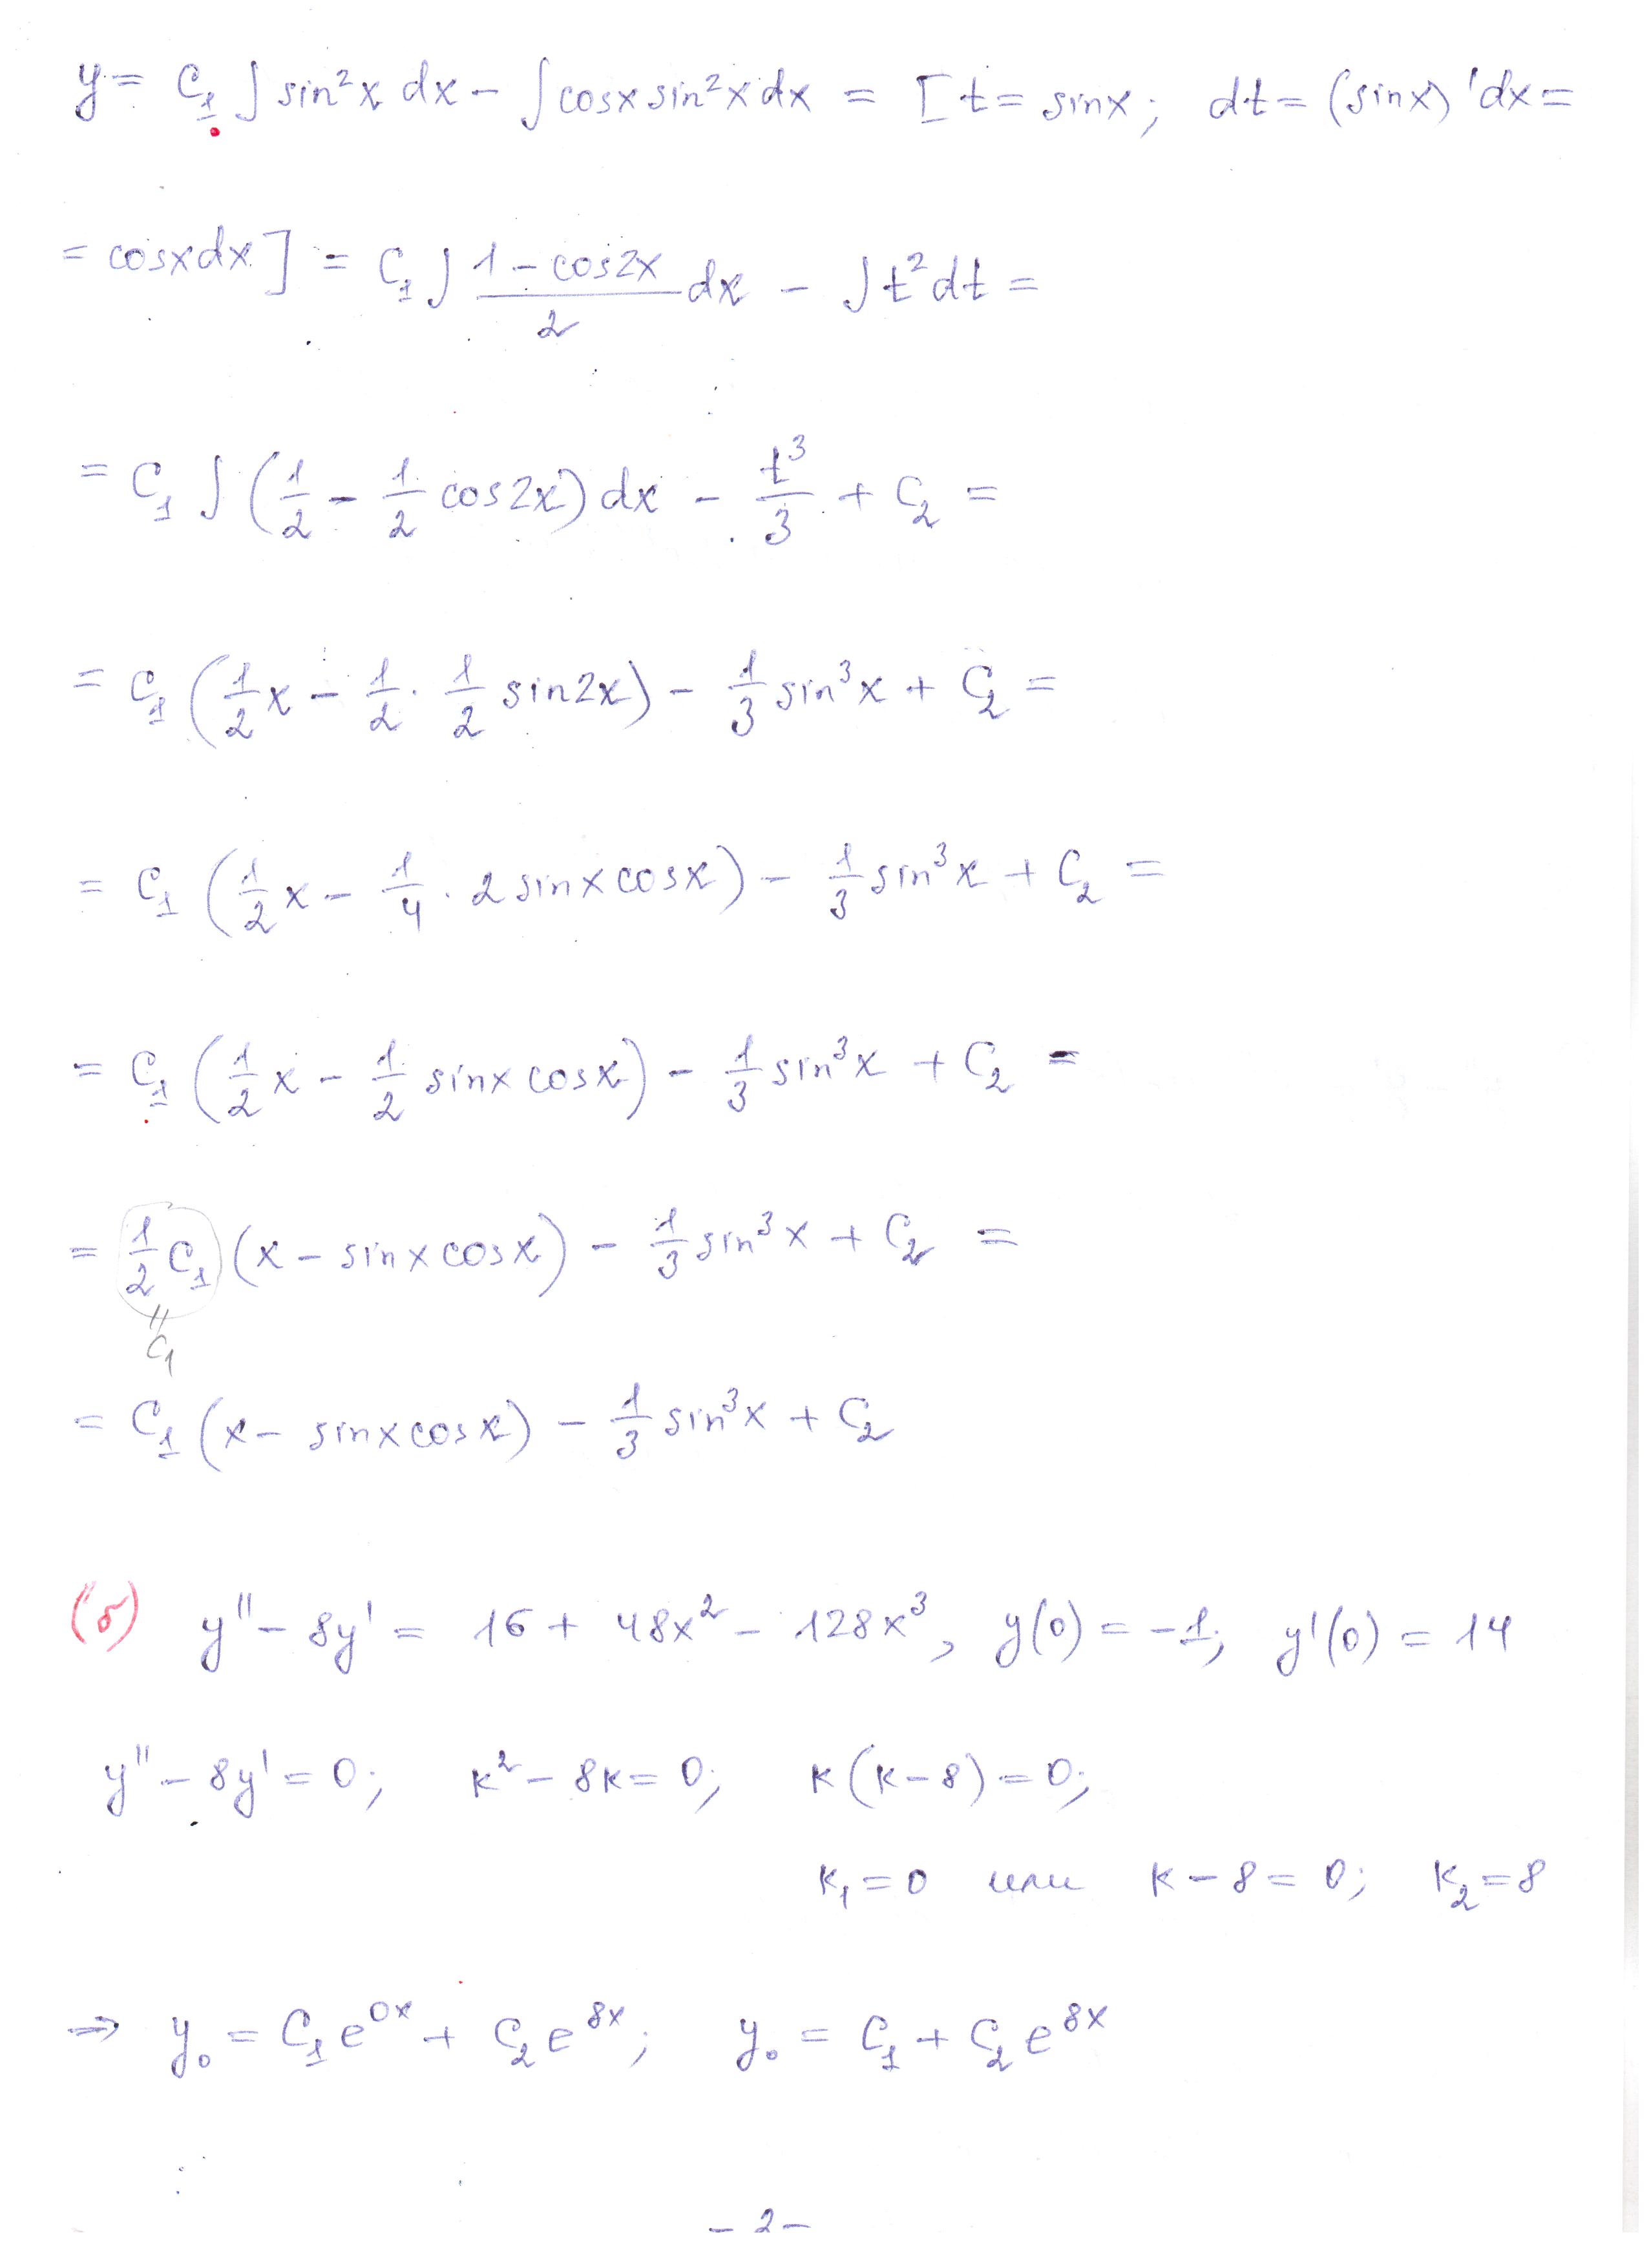 y = C₁ ∫ sin²x dx − ∫ cosx sin²x dx = [ t = sinx; dt = (sinx)' dx =
= cosx dx ] = C₁ ∫ (1 − cos2x)/2 dx − ∫ t² dt =
= C₁ ∫ (1/2 − 1/2 cos2x) dx − t³/3 + C₂ =
= C₁ (1/2 x − 1/2 · 1/2 sin2x) − 1/3 sin³x + C₂ =
= C₁ (1/2 x − 1/4 · 2 sinx cosx) − 1/3 sin³x + C₂ =
= C₁ (1/2 x − 1/2 sinx cosx) − 1/3 sin³x + C₂ =
= 1/2 C₁ (x − sinx cosx) − 1/3 sin³x + C₂ =
"
C₁
= C₁ (x − sinx cosx) − 1/3 sin³x + C₂
(б) y'' − 8y' = 16 + 48x² − 128x³, y(0) = −1; y'(0) = 14
y'' − 8y' = 0; k² − 8k = 0; k(k − 8) = 0;
k₁ = 0 или k − 8 = 0; k₂ = 8
⇒ y₀ = C₁e^(0x) + C₂e^(8x); y₀ = C₁ + C₂e^(8x)
− 2 −